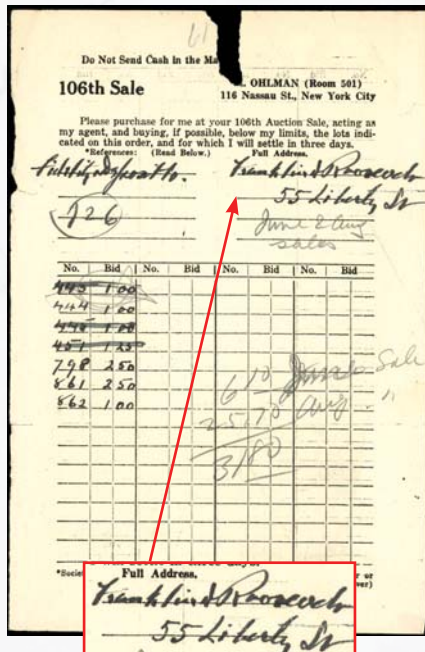 61
Do Not Send Cash in the Ma
106th Sale
. OHLMAN (Room 501)
116 Nassau St., New York City
Please purchase for me at your 106th Auction Sale, acting as
my agent, and buying, if possible, below my limits, the lots indi-
cated on this order, and for which I will settle in three days.
*References: (Read Below.) Full Address.
Fidelity Deposit Co. Franklin D Roosevelt
55 Liberty St
726
June & Aug
sales
No. Bid No. Bid No. Bid No. Bid
443 1 00
444 1 00
445 1 00
451 1 25
798 2 50
861 2 50
862 1 00
6 10 June Sale
25.70 Aug "
31 80
*Societ
Full Address.
r or
ver)
Franklin D Roosevelt
55 Liberty St